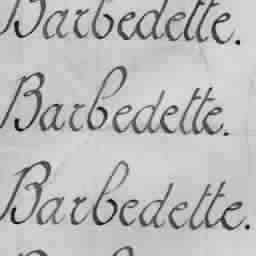 Barbedette.
Barbedette.
Barbedette.